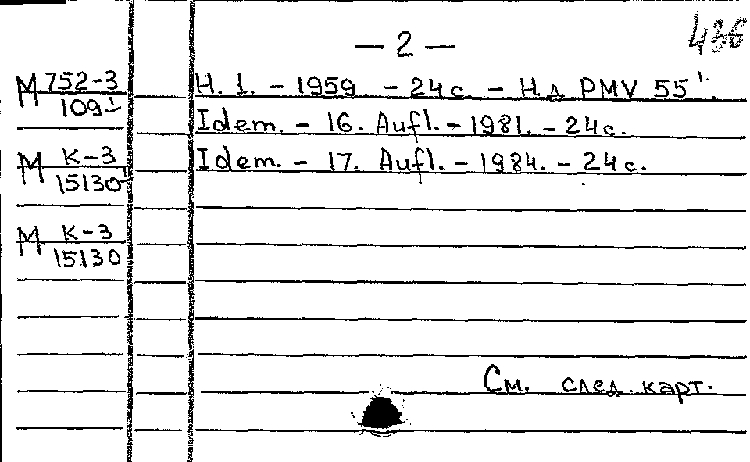 — 2 —
436
М 752-3/109¹ H. 1. - 1959 - 24 с. - Н.д. PMV 55¹.
Idem. - 16. Aufl. - 1981. - 24 с.
М К-3/15130¹ Idem. - 17. Aufl. - 1984. - 24 с.
М К-3/15130
См. след. карт.